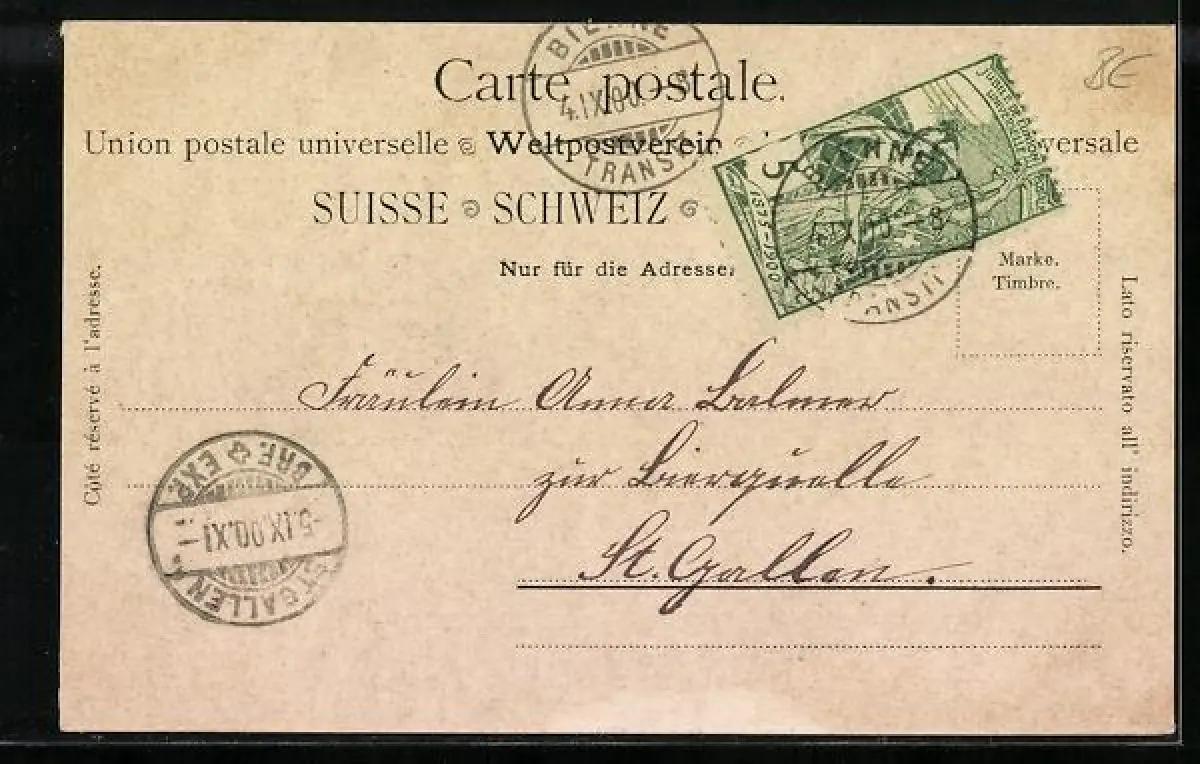 BIENNE
4.IX.00.-8
TRANSIT
Carte postale.
BE
Union postale universelle Weltpostverein versale
SUISSE SCHWEIZ
Nur für die Adresse.
5
1875-1900
BIENNE
4.IX.00.-8
TRANSIT
Marke.
Timbre.
Côté réservé à l'adresse.
Lato riservato all' indirizzo.
Fräulein Anna Balmer
zur Bierquelle
St. Gallen.
ST. GALLEN
-5.IX.00.XI-
BRF. EXP.